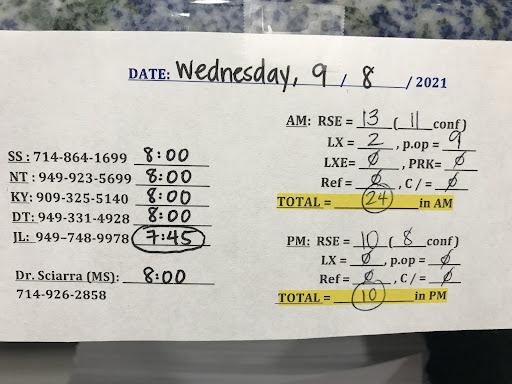 DATE: Wednesday, 9 / 8 / 2021
SS : 714-864-1699 8:00
NT : 949-923-5699 8:00
KY: 909-325-5140 8:00
DT: 949-331-4928 8:00
JL: 949-748-9978 7:45
Dr. Sciarra (MS): 8:00
714-926-2858
AM: RSE = 13 ( 11 conf)
LX = 2 , p.op = 9
LXE= Ø , PRK= Ø
Ref = Ø , C / = Ø
TOTAL = 24 in AM
PM: RSE = 10 ( 8 conf)
LX = Ø , p.op = Ø
Ref = Ø , C / = Ø
TOTAL = 10 in PM